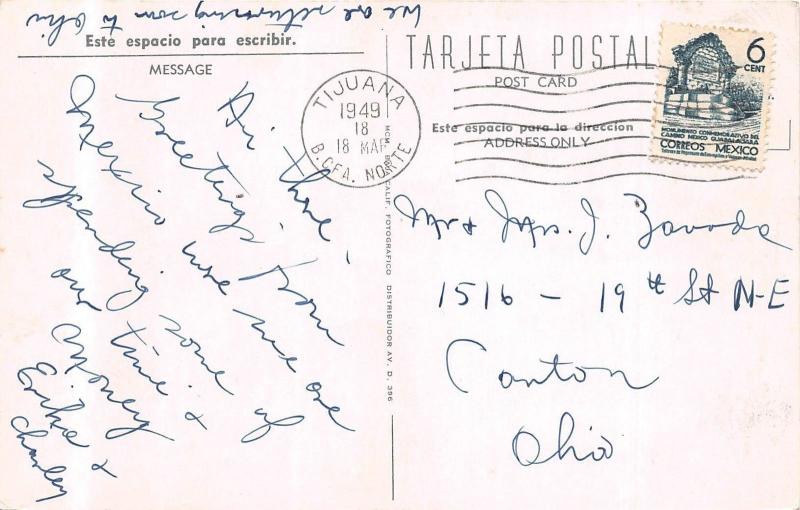 We are returning soon to Ohio
Este espacio para escribir.
MESSAGE
Hi there,
Greetings from
Mexico where we are
spending some of
our time &
money
Erika &
Charley
TARJETA POSTAL
POST CARD
Este espacio para la direccion
ADDRESS ONLY
TIJUANA
1949
18
18 MAR
B. CFA. NORTE
6
CENT
MONUMENTO CONMEMORATIVO DEL
CAMINO MEXICO GUADALAJARA
CORREOS MEXICO
CALIF. FOTOGRAFICO DISTRIBUIDOR AV. D, 396
Mr & Mrs. J. Zavoda
1516 - 19th St N-E
Canton
Ohio